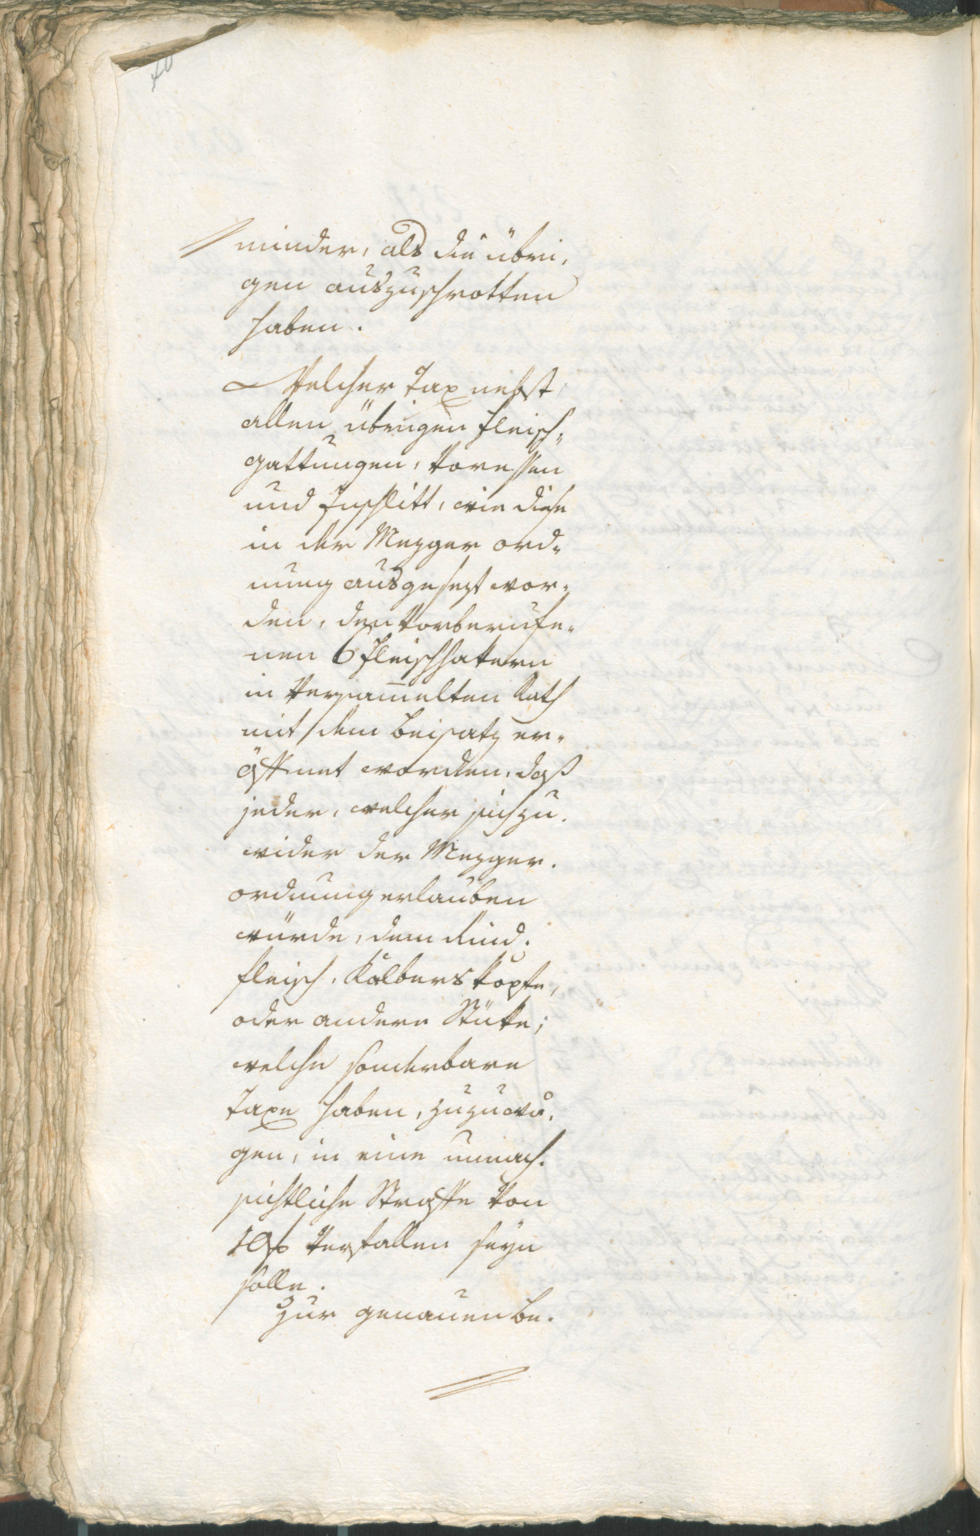 minder, als die übri,
gen auszuschrotten
haben.
Welcher Tax nebst
allen übrigen Fleisch,,
gattungen, Voressen
und Inschlitt, wie diese
in der Mezger ord,,
nung ausgesezt wor,,
den, den Vorberufe,,
nen 6 Fleischhakern
in Versam̅elten Rath
mit dem Beisatz er,,
öffnet worden, daß
jeder, welcher sich zu,
wider der Mezger.
ordnung erlauben
würde, dem Rind,
fleisch, Kälberskopfe,
oder andere Stüke;
welche sonderbare
Taxe haben, zuzuwä,
gen, in eine unnach,
sichtliche Straffe von
10 f verfallen seyn
solle.
Zur genauen Be,